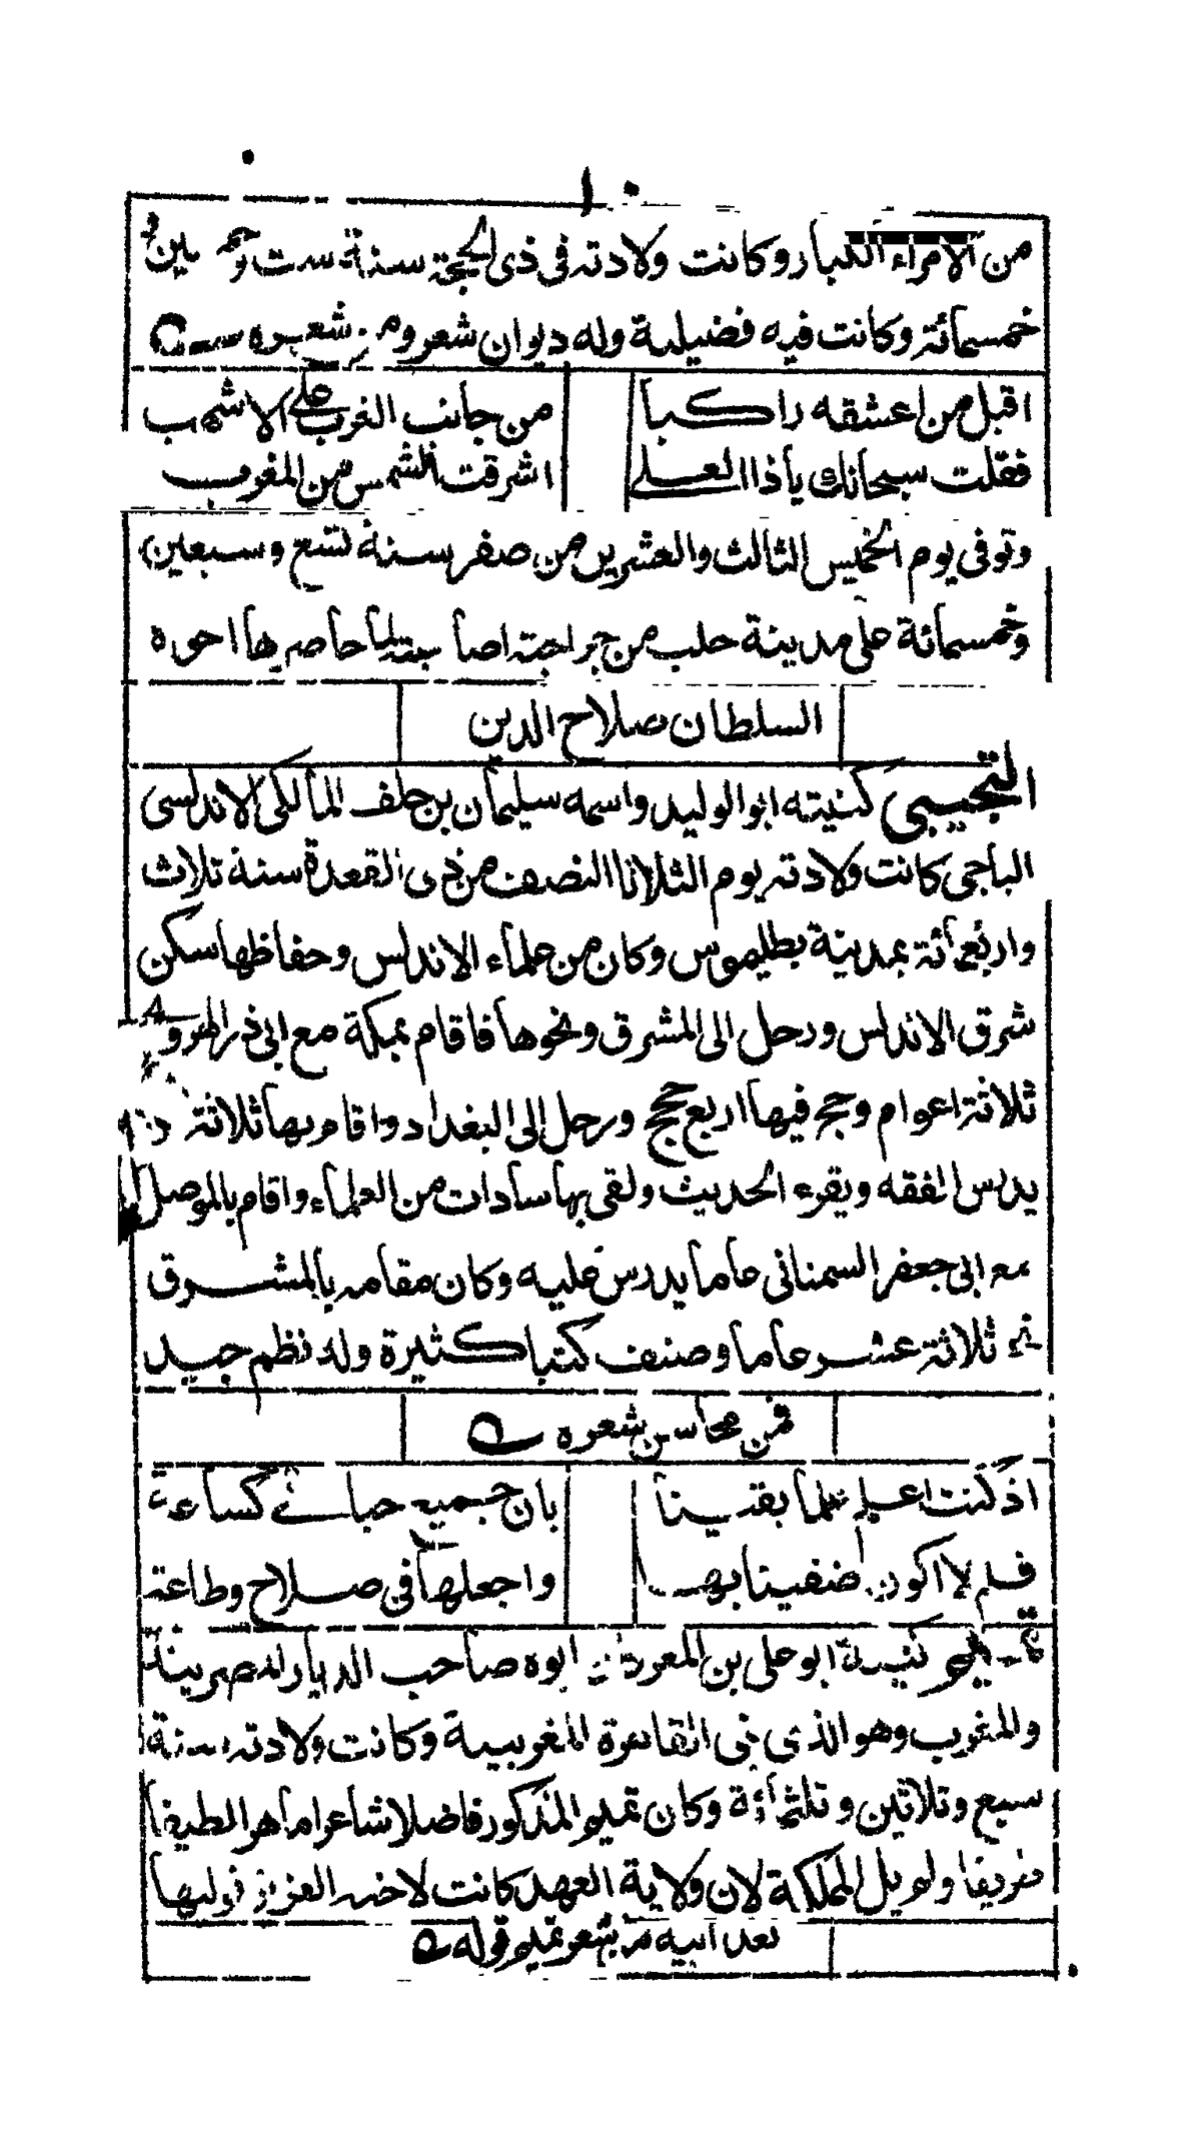 ١٠
من الامراء الكبار وكانت ولادته فى ذى الحجة سنة ست وخمسين و
خمسمائة وكانت فيه فضيلة وله ديوان شعر ومن شعره
اقبل من اعشقه راكبا من جانب الغرب على الاشهب
فقلت سبحانك يا ذا العلى اشرقت الشمس من المغرب
وتوفى يوم الخميس الثالث والعشرين من صفر سنة تسع وسبعين
وخمسمائة على مدينة حلب من جراحة اصابته لما حاصرها اخوه
السلطان صلاح الدين
التجيبى كنيته ابو الوليد واسمه سليمان بن خلف المالكى الاندلسى
الباجى كانت ولادته يوم الثلاثا النصف من ذى القعدة سنة ثلاث
واربعمائة بمدينة بطليموس وكان من علماء الاندلس وحفاظها سكن
شرق الاندلس ورحل الى المشرق ونحوها فاقام بمكة مع ابى ذر الهروى
ثلاثة اعوام وحج فيها اربع حجج ورحل الى البغداد واقام بها ثلاثة
يدرس الفقه ويقرء الحديث ولقى بها سادات من العلماء واقام بالموصل
مع ابى جعفر السمنانى عاما يدرس عليه وكان مقامه بالمشرق
نحو ثلاثة عشر عاما وصنف كتبا كثيرة وله نظم جيد
فمن محاسن شعره
اذ كنت اعلم علما يقينا بان جميع حياتى كساعة
فلم لا اكون ضنينا بها واجعلها فى صلاح وطاعة
تميم كنيته ابو على بن المعز ابوه صاحب الديار المصرية
والمغرب وهو الذى بنى القاهرة المغربية وكانت ولادته سنة
سبع وثلاثين وثلثمائة وكان تميم المذكور فاضلا شاعرا ماهرا لطيفا
ظريفا ولم يل المملكة لان ولاية العهد كانت لاخيه العزيز فوليها
بعد ابيه من شعر تميم قوله